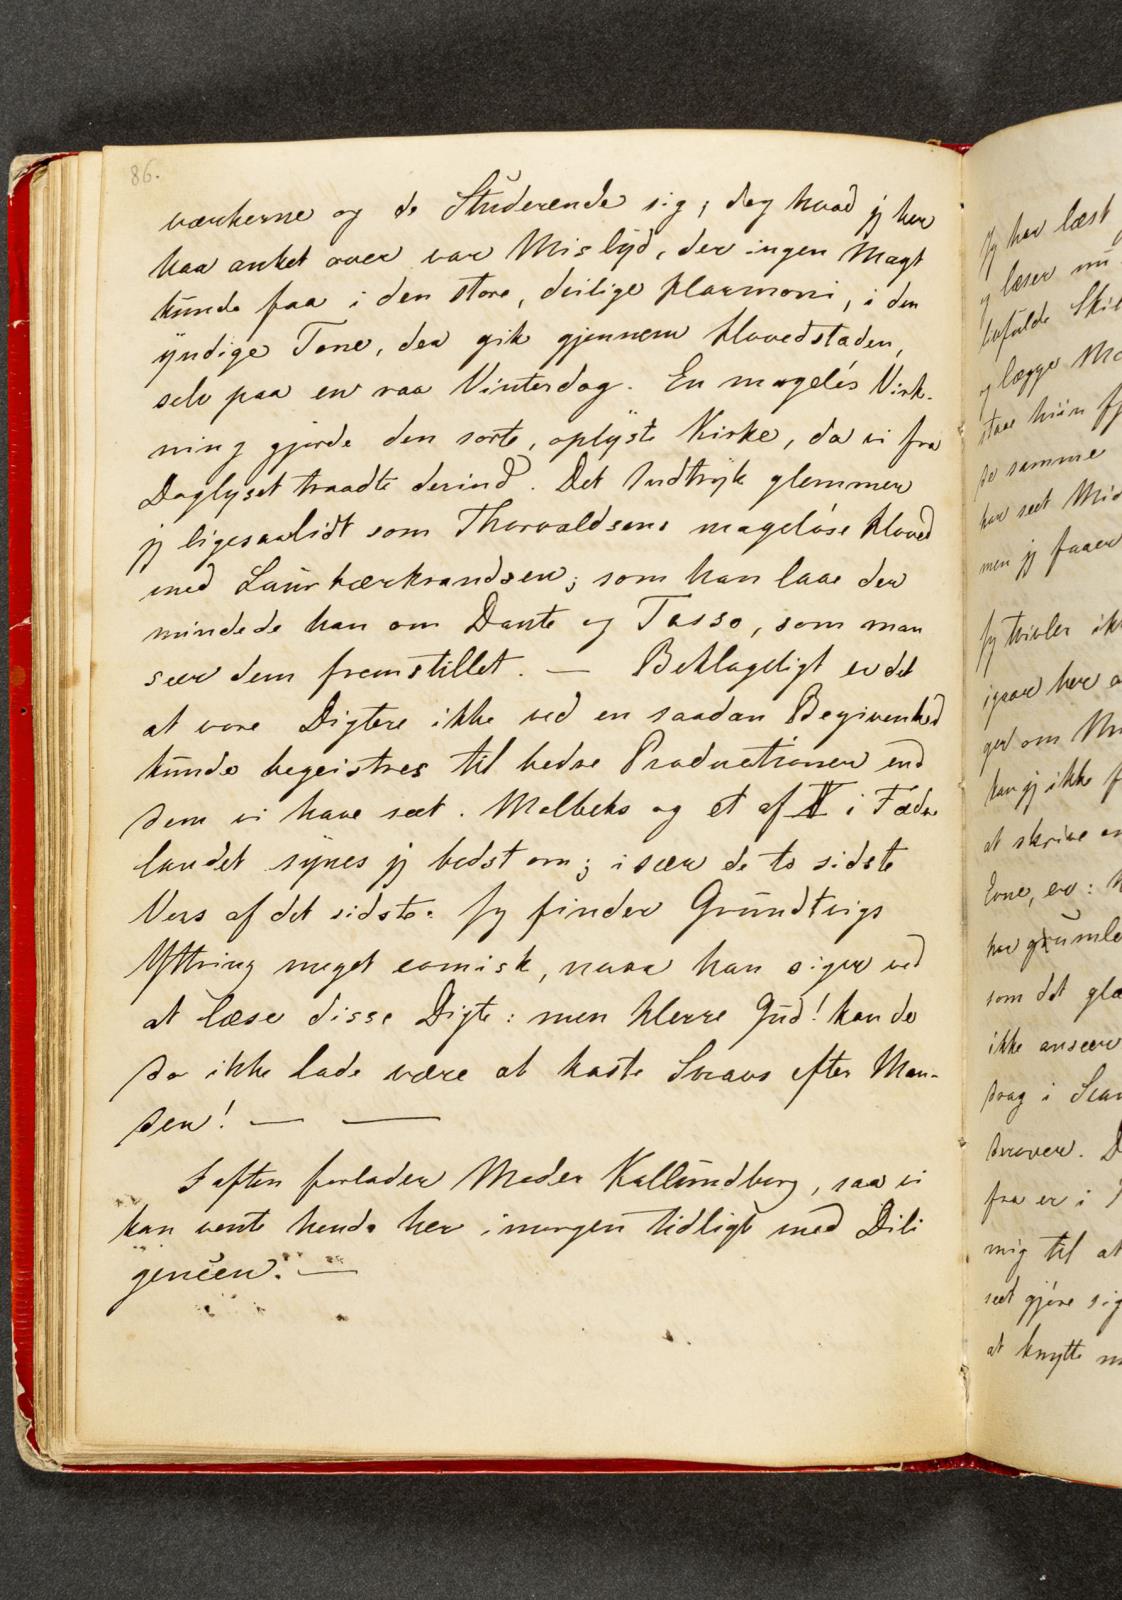 86.
værkerne og de Studerende sig; dog hvad jeg her
har anket over var Mislyd, der ingen Magt
kunde faa i den store, deilige Harmoni, i den
yndige Tone, der gik gjennem Hovedstaden,
selv paa en raa Vinterdag. En mageløs Virk-
ning gjorde den sorte, oplyste Kirke, da vi fra
Daglyset traadte derind. Det Indtryk glemmer
jeg ligesaalidt som Thorvaldsens mageløse Hoved
med Laurbærkrandsen; som han laae der
mindede han om Dante og Tasso, som man
seer dem fremstillet. — Beklageligt er det
at vore Digtere ikke ved en saadan Begivenhed
kunde begeistres til bedre Productioner end
dem vi have seet. Molbeks og et af V i Fædre
landet synes jeg bedst om; især de to sidste
Vers af det sidste. Jeg finder Grundtvigs
Yttring meget comisk, naar han siger ved
at læse disse Digte: men Herre Gud! kan de
da ikke lade være at kaste Snavs efter Man-
den! — —
Iaften forlader Moder Kallundborg, saa vi
kan vente hende her imorgen tidligt med Dili
gencen. —
Jeg har læst
og læser nu
og lægge
staae hiin
de samme
har seet
men jeg faaer
Jeg tvivler
igaar her
ger om
kan jeg ikke
at skrive
Evne, er:
har grumle
som det
ikke anseer
drag i
derover.
fra er i
mig til at
seet gjøre sig
at knytte